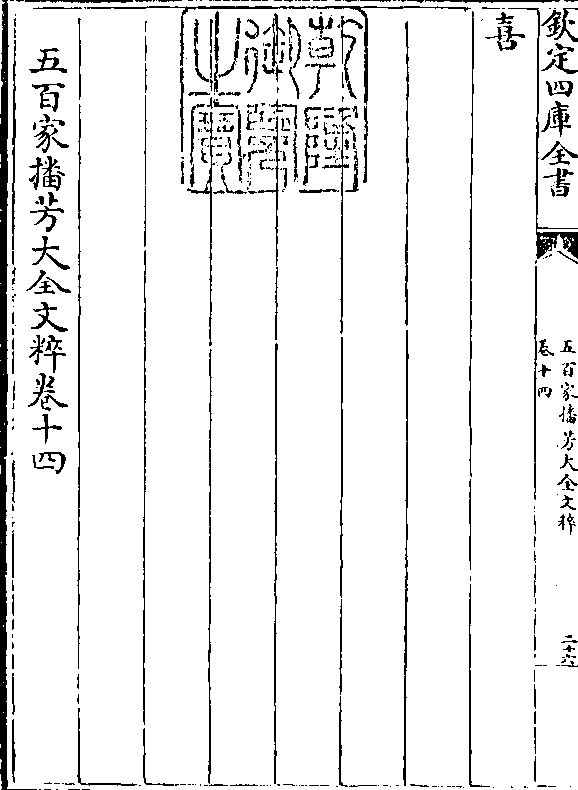 欽定四庫全書
五百家播芳大全文粹
卷十四
二十六
喜
乾隆
御覽
之寶
五百家播芳大全文粹卷十四